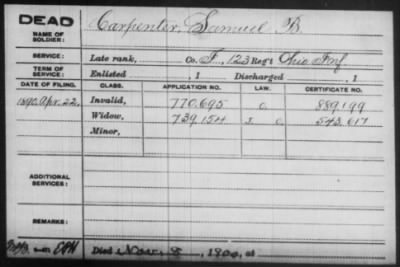 DEAD Carpenter, Samuel B.
NAME OF SOLDIER:
SERVICE: Late rank, Co. F, 123 Reg't Ohio Inf
TERM OF SERVICE: Enlisted , 1 Discharged , 1
DATE OF FILING. CLASS. APPLICATION NO. LAW. CERTIFICATE NO.
1890, Apr. 22. Invalid, 770.695 889.199
Widow, 729.154 543.617
Minor,
ADDITIONAL SERVICES:
REMARKS:
Died Nov. 8, 1900, at